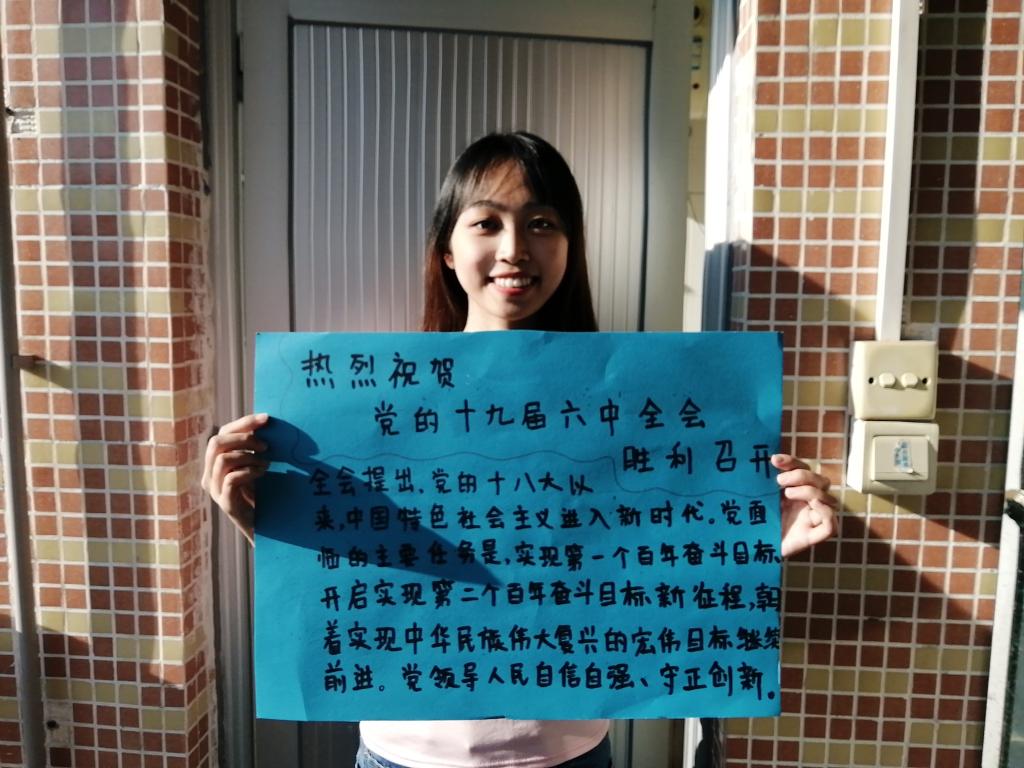 热烈祝贺
党的十九届六中全会
胜利召开
全会提出，党的十八大以
来，中国特色社会主义进入新时代。党面
临的主要任务是，实现第一个百年奋斗目标，
开启实现第二个百年奋斗目标新征程，朝
着实现中华民族伟大复兴的宏伟目标继续
前进。党领导人民自信自强、守正创新。